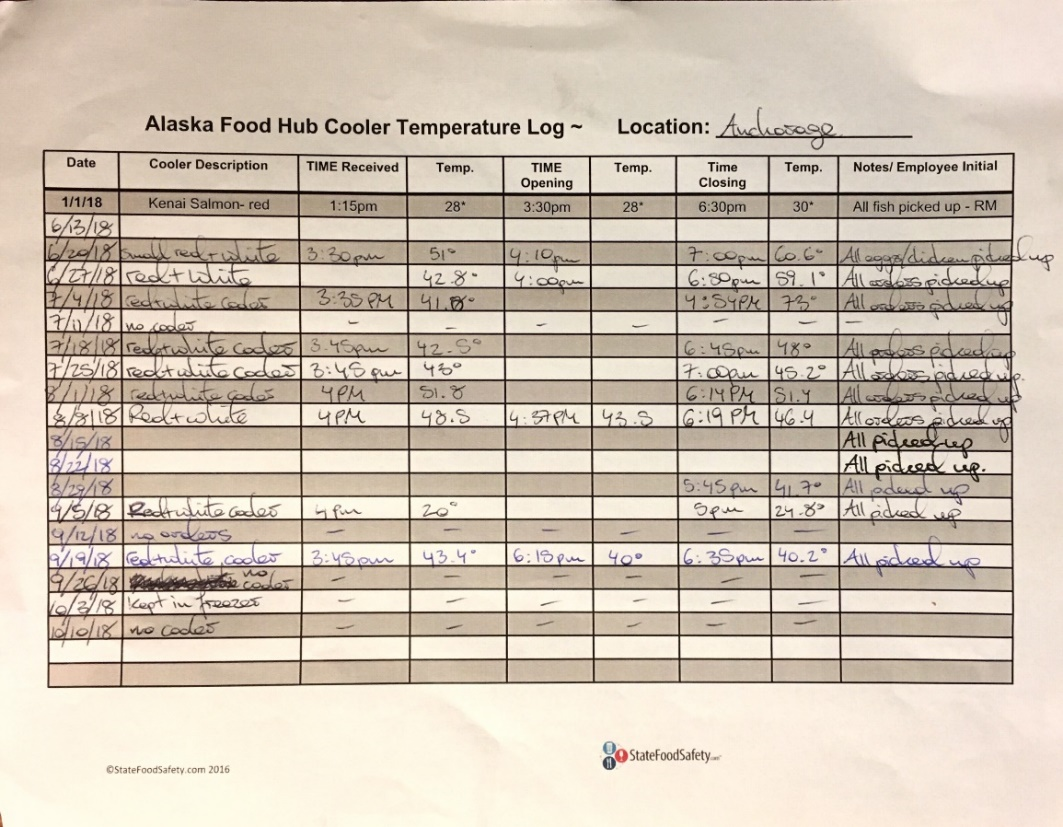 Alaska Food Hub Cooler Temperature Log ~ Location: Anchorage
Date Cooler Description TIME Received Temp. TIME Opening Temp. Time Closing Temp. Notes/ Employee Initial
1/1/18 Kenai Salmon- red 1:15pm 28* 3:30pm 28* 6:30pm 30* All fish picked up - RM
6/13/18
6/20/18 small red+white 3:30pm 51° 4:10pm 7:00pm 60.6° All eggs/chicken picked up
6/27/18 red+white 42.8° 4:00pm 6:30pm 59.1° All orders picked up
7/4/18 red+white cooler 3:35PM 41.8° 4:54PM 73° All orders picked up
7/11/18 no cooler – – – – – – –
7/18/18 red+white cooler 3:45pm 42.5° 6:45pm 48° All orders picked up
7/25/18 red+white cooler 3:45pm 43° 7:00pm 45.2° All orders picked up.
8/1/18 red+white cooler 4PM 51.8 6:14PM 51.4 All orders picked up
8/8/18 Red+white 4PM 48.5 4:37PM 43.5 6:19PM 46.4 All orders picked up
8/15/18 All picked up
8/22/18 All picked up.
8/29/18 5:45pm 41.7° All picked up
9/5/18 Red+white cooler 4pm 20° 5pm 24.8° All picked up
9/12/18 no orders – – – – – –
9/19/18 red+white cooler 3:45pm 43.4° 6:15pm 40° 6:35pm 40.2° All picked up
9/26/18 no cooler – – – – – –
10/3/18 kept in freezer – – – – – –
10/10/18 no cooler – – – – – –
©StateFoodSafety.com 2016 StateFoodSafety.com